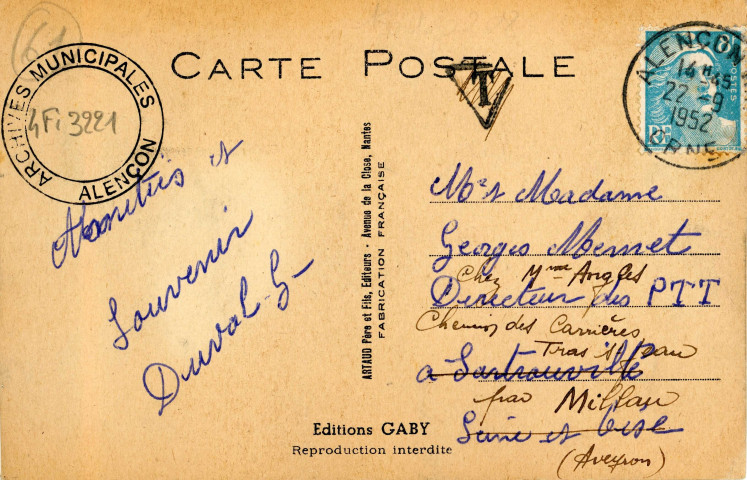 61
ARCHIVES MUNICIPALES
ALENÇON
4Fi 3221
CARTE POSTALE
T
ALENÇON
14H45
22-9
1952
ORNE
POSTES
Amitiés et
Souvenir
Duval G
ARTAUD Père et Fils, Editeurs - Avenue de la Close, Nantes
FABRICATION FRANÇAISE
Mr et Madame
Georges Mermet
Chez Mme Angles
Directeur des PTT
Chemin des Carrières
Tras st Jean
a Sartrouville
par Millau
Seine et Oise
(Aveyron)
Editions GABY
Reproduction interdite